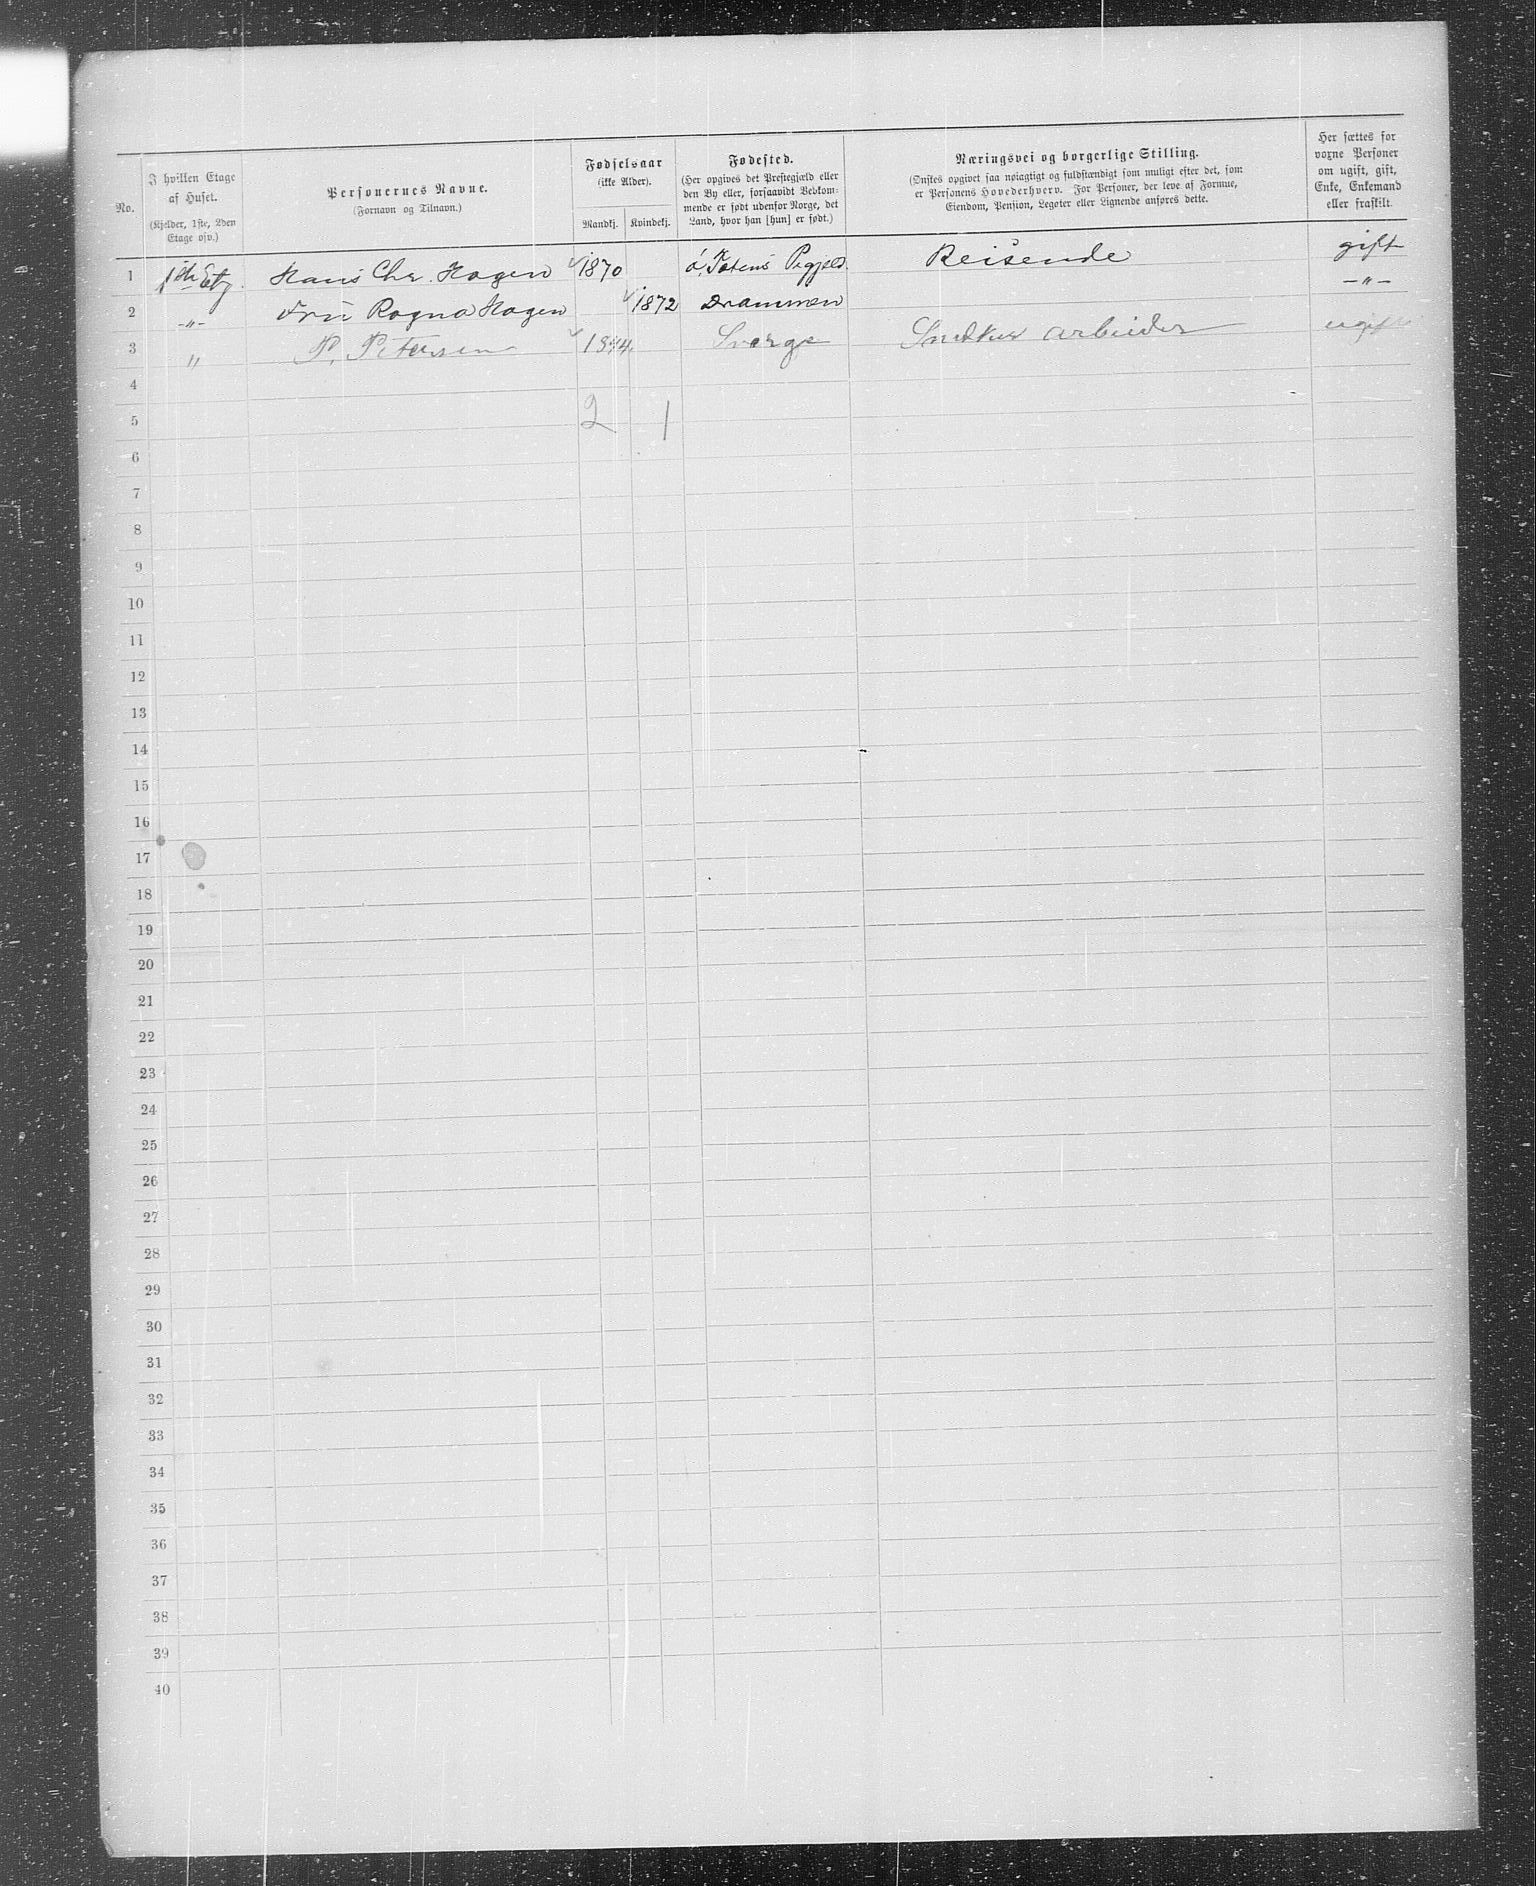 No.
I hvilken Etage af Huset.
(Kjelder, 1ste, 2den Etage osv.)
Personernes Navne.
(Fornavn og Tilnavn.)
Fødselsaar
(ikke Alder).
Mandkj. Kvindekj.
Fødested.
(Her opgives det Prestegjæld eller
den By eller, forsaavidt Vedkom-
mende er født udenfor Norge, det
Land, hvor han [hun] er født.)
Næringsvei og borgerlige Stilling.
(Ønskes opgivet saa nøiagtigt og fuldstændigt som muligt efter det, som
er Personens Hovederhverv. For Personer, der leve af Formue,
Eiendom, Pension, Legater eller Lignende anføres dette.
Her sættes for
voxne Personer
om ugift, gift,
Enke, Enkemand
eller fraskilt.
1 1ste Etg. Hans Chr. Hagen 1870 Ø. Totens Prgjeld. Reisende gift
2 -„- Fru Ragna Hagen 1872 Drammen -„-
3 „ P. Petersen Sverge Snedker arbeider ugift
4
5 2 1
6
7
8
9
10
11
12
13
14
15
16
17
18
19
20
21
22
23
24
25
26
27
28
29
30
31
32
33
34
35
36
37
38
39
40